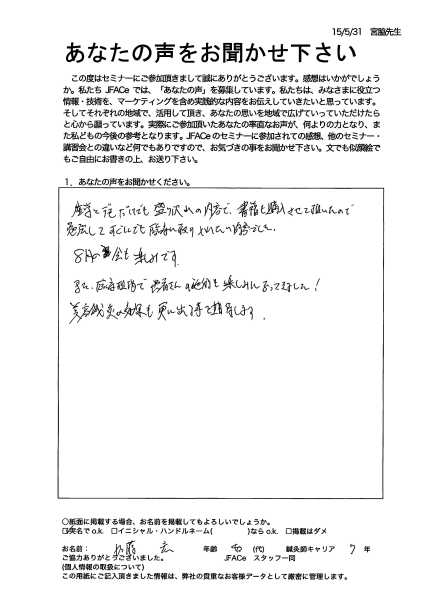 15/5/31 宮脇先生
あなたの声をお聞かせ下さい
この度はセミナーにご参加頂きまして誠にありがとうございます。感想はいかがでしょう
か。私たち JFACe では、「あなたの声」を募集しています。私たちは、みなさまに役立つ
情報・技術を、マーケティングを含め実践的な内容をお伝えしていきたいと思っています。
そしてそれぞれの地域で、活用して頂き、あなたの思いを地域で広げていっていただけたら
と心から願っています。実際にご参加頂いたあなたの率直なお声が、何よりの力となり、ま
た私どもの今後の参考となります。JFACe のセミナーに参加されての感想、他のセミナー・
講習会との違いなど何でもありですので、お気づきの事をお聞かせ下さい。文でも似顔絵で
もご自由にお書きの上、お送り下さい。
1．あなたの声をお聞かせください。
座学と だけでも 盛り沢山の内容で、書籍も購入させて頂いたので
勉強して すぐにでも 取り入れたい内容でした。
8月の 会も楽しみです。
また、 患者さん 施術も楽しみになってきました！
美容鍼灸の効果も更に出る様
〇紙面に掲載する場合、お名前を掲載してもよろしいでしょうか。
☑実名で o.k. □イニシャル・ハンドルネーム( )なら o.k. □掲載はダメ
お名前： 年齢 (代) 鍼灸師キャリア 7 年
ご協力ありがとうございました。 JFACe スタッフ一同
(個人情報の取扱について)
この用紙にご記入頂きました情報は、弊社の貴重なお客様データとして厳密に管理します。